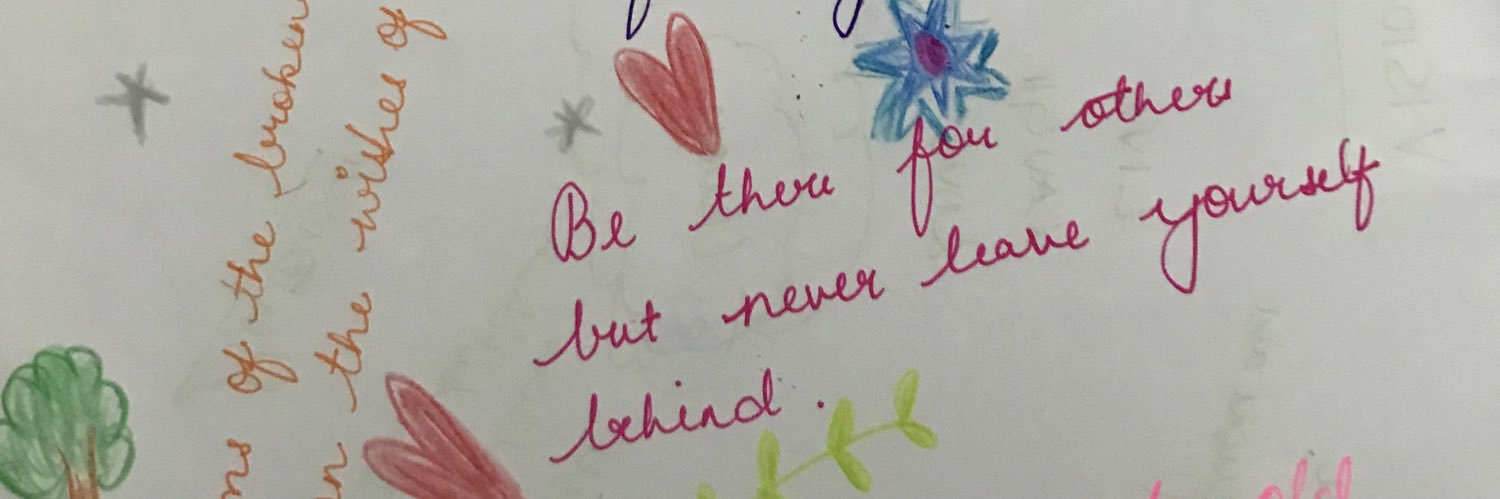 Be there for others
but never leave yourself
behind.
of the broken
the wishes of
old